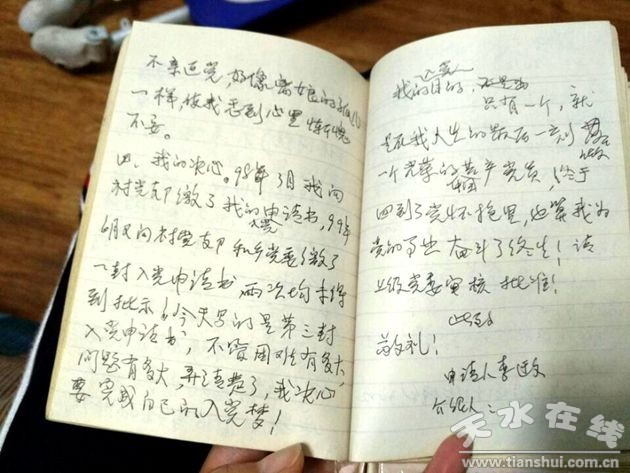 不亲近党，好像离娘的孤儿
一样，使我感到心里惭愧
不安。
四、我的决心。98年3月我向
村党支部缴了我的入党申请书，99年
6月又向村党支部和乡党委缴了
一封入党申请书两次均未得
到批示，今天写的是第三封
入党申请书，不管困难有多大，
问题有多大，弄清楚了，我决心
要完成自己的入党梦！
我的入党目的，
只有一个，就
是在我人生的最后一刻
一个光荣的中国共产党员，终于
回到了党怀抱里，也算我为
党的事业奋斗了终生！请
上级党委审核批准！
此致
敬礼！
申请人李
介绍人：
天水在线
www.tianshui.com.cn